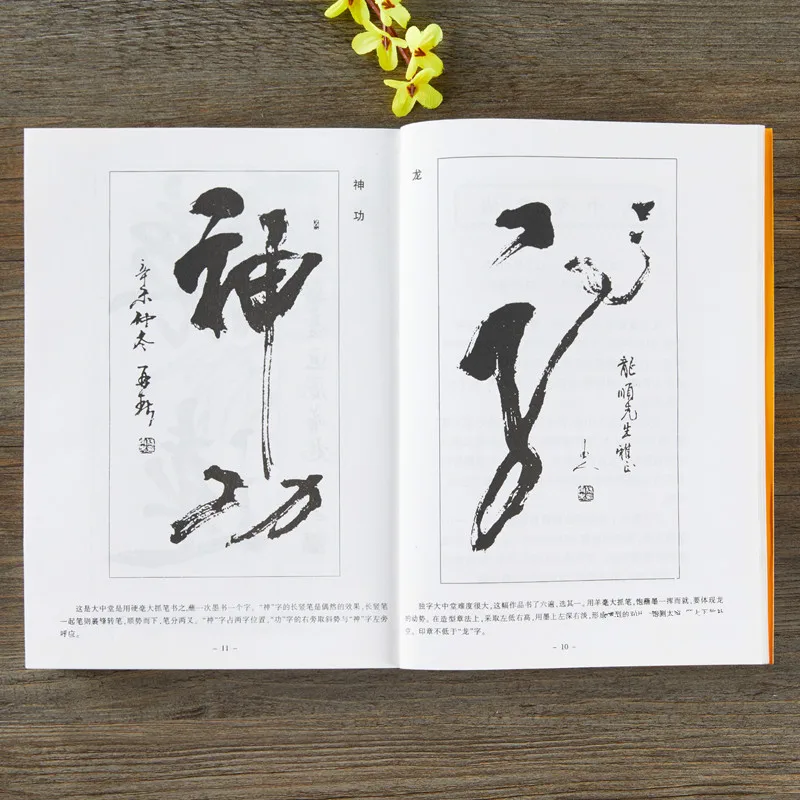 神功
神
功
辛未仲冬
这是大中堂是用硬毫大抓笔书之,蘸一次墨书一个字。“神”字的长竖笔是偶然的效果,长竖笔
一起笔则裹锋转笔,顺势而下,笔分两叉。“神”字占两字位置,“功”字的右旁取斜势与“神”字左旁
呼应。
- 11 -
龙
龍
龍順先生雅正
独字大中堂难度很大,这幅作品书了六遍,选其一。用羊毫大抓笔,饱蘸墨一挥而就,要体现龙
的动势。在造型章法上,采取左低右高,用墨上左深右淡,形成
字。印章不低于“龙”字。
- 10 -